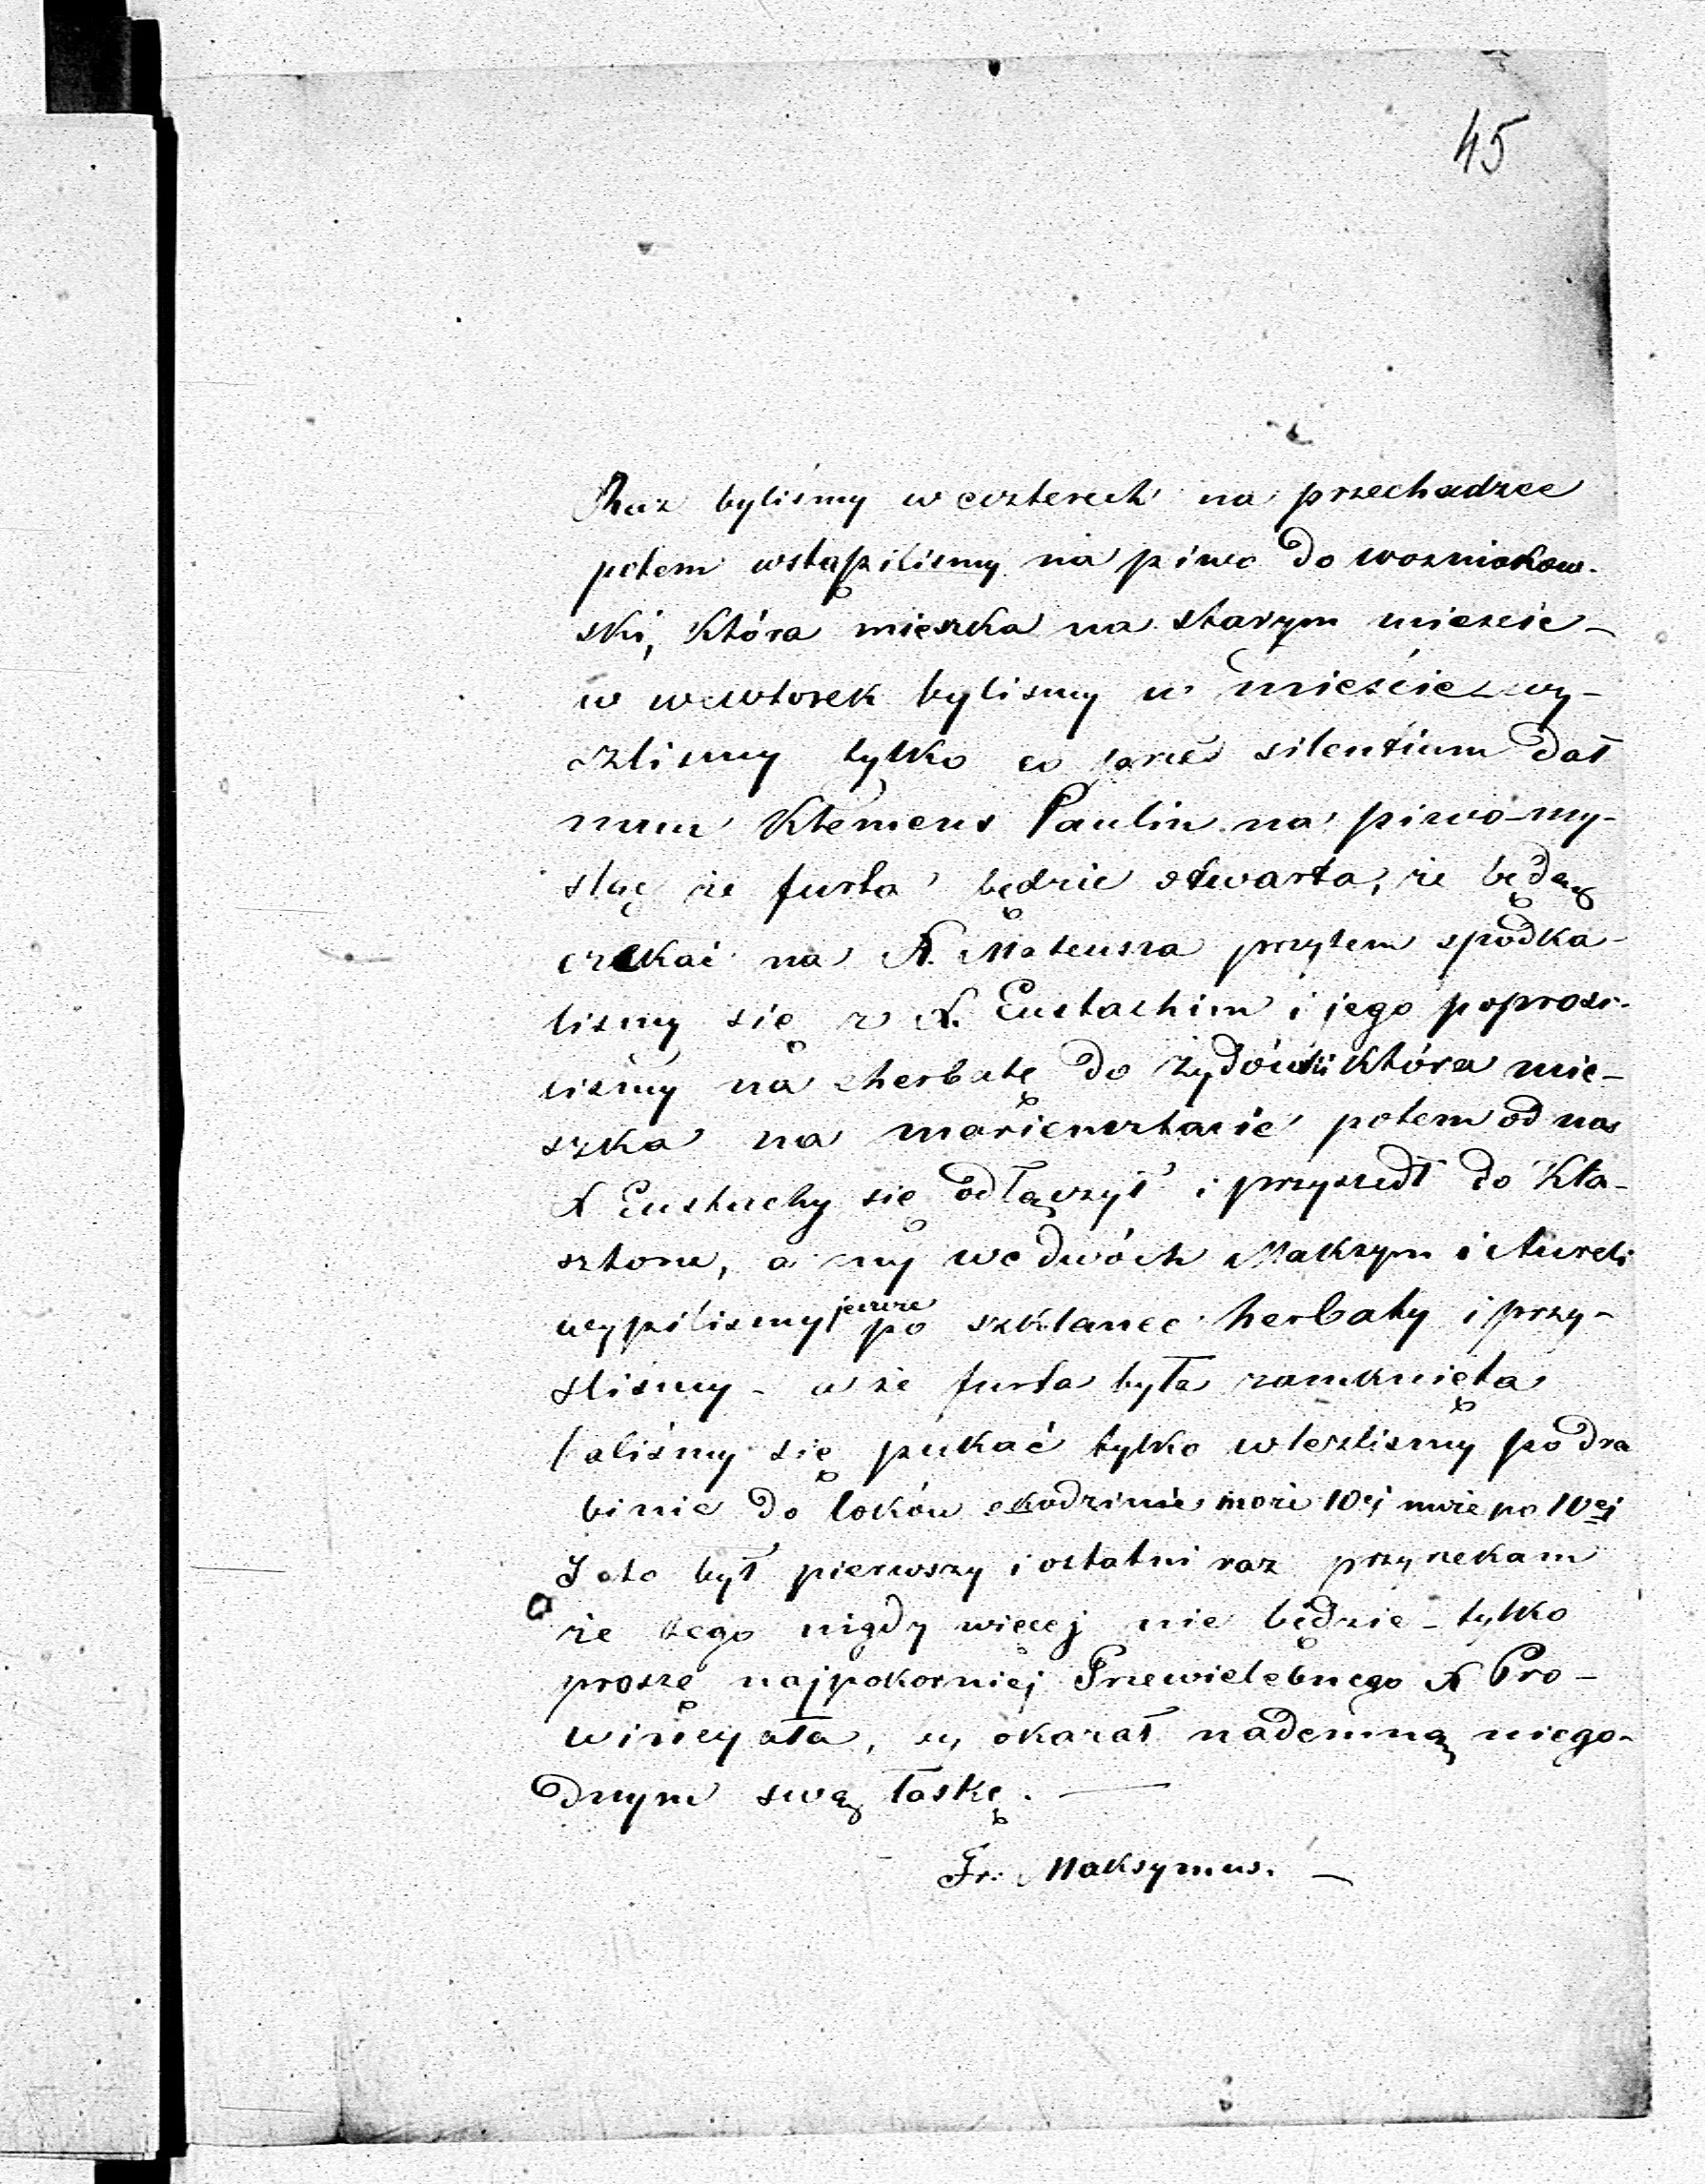 45
Raz byliśmy w czterech na przechadzce
potem wstąpilismy na piwo do wozniakow-
ski, która mięszka na starym mieście –
w wewtorek bylismy w mieście – wy-
szlismy tylko co silentium dał
num Klemens Paulin na piwo – my-
śląc że furta będzie otwarta, że będą
czekać na X. Mateusza przytem spodka-
lismy się z X. Eustachim i jego poprosi-
lismy na cherbatę do żydówki która mie-
szka na marienrztacie potem od nas
X Eustachy się odłączył i przyszedł do Kla-
sztoru, a my we dwóch Maksym i Aureli
wypilismy jeszcze po szklance herbaty i przy-
śliśmy – a że furta była zamknięta
baliśmy się pukać tylko wleźlismy po dra
binie do loków o kodzinie może 10ej może po 10ej
I oto był pierwszy i ostatni raz przyrzekam
że tego nigdy więcej nie będzie – tylko
proszę najpokorniej Przewielebnego X Pro-
wincyała, by okazał nademną niego-
dnym swą łaskę. —
Fr. Maksymus. –